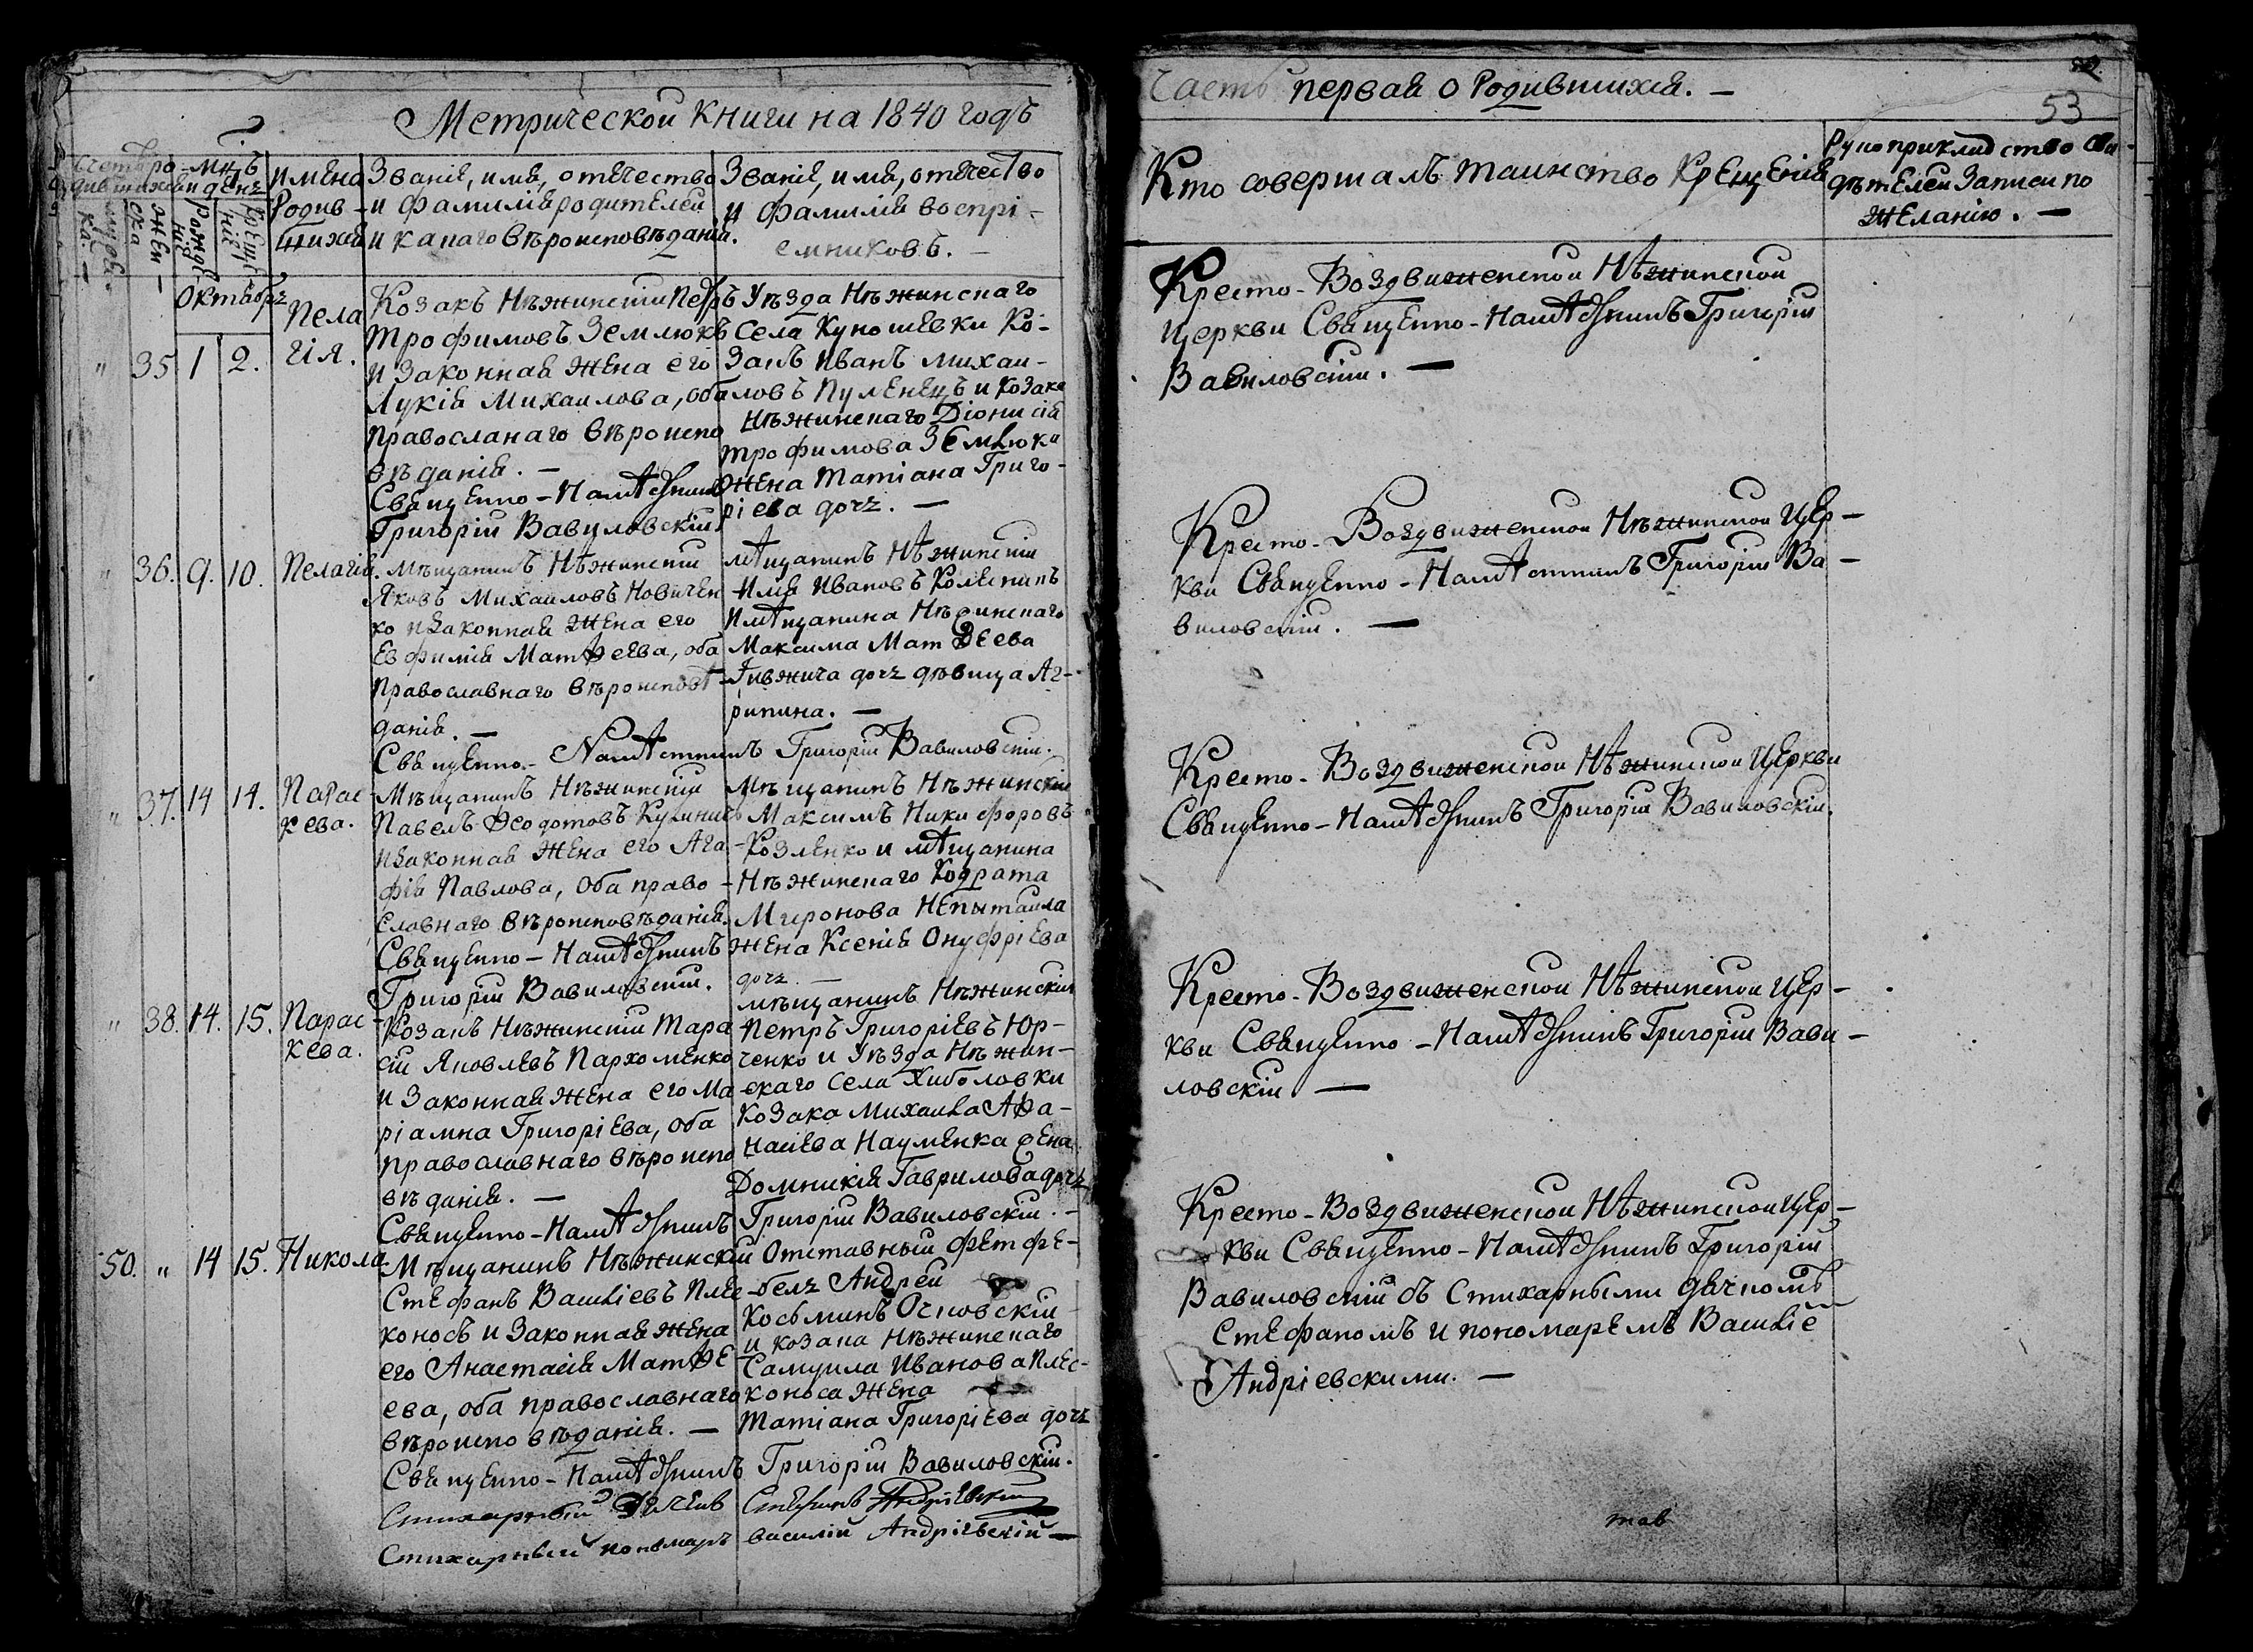 Метрической книги на 1840 годъ
Счетъ родившихся
мц-ъ и день
Имена Родившихся
Званіе, имя, отечество
и фамилія родителей
и какаго вѣроисповѣданія.
Званіе, имя, отечество
и фамилія воспрі-
емниковъ. —
мужеска. —
женска —
рожденіе
крещеніе
Октябрь
" 35 1 2. Пелагія.
Козакъ Нѣжинскій Петръ
Трофимовъ Землюкъ
и законная жена его
Лукія Михаилова, оба
Правосланаго вѣроиспо
вѣданія. —
Священно-Намѣстникъ
Григорій Вавиловскій
Уѣзда Нѣжинскаго
села Куношевки Ко-
закъ Иванъ Михаи-
ловъ Пуленецъ и козака
Нѣжинскаго Діонисія
Трофимова Землюка
жена Татіана Григо-
ріева дочь. —
" 36. 9. 10. Пелагія.
Мѣщанинъ Нѣжинскій
Яковъ Михаиловъ Новичен
ко и законная жена его
Евфимія Матѳеева, оба
Православнаго вѣроисповѣ-
данія. —
Мѣщанинъ Нѣжинскій
Илія Ивановъ Колесникъ
и мѣщанина Нѣжинскаго
Максима Матѳеева
дочь дѣвица Аг-
рипина. —
Священно-Намѣстникъ Григорій Вавиловскій.
" 37. 14 14. Параскева.
Мѣщанинъ Нѣжинскій
Павелъ Ѳеодотовъ
и законная жена его Ага-
фія Павлова, оба право-
славнаго вѣроисповѣданія.
Священно-Намѣстникъ
Григорій Вавиловскій.
Мѣщанинъ Нѣжинскій
Максимъ Никифоровъ
Козленко и мѣщанина
Нѣжинскаго Кодрата
Миронова Непытаила
жена Ксенія Онуфріева
дочь —
" 38. 14. 15. Параскева.
Козакъ Нѣжинскій Тара
сій Яковлевъ Пархоменко
и законная жена его Ма
ріамна Григоріева, оба
православнаго вѣроиспо
вѣданія. —
Мѣщанинъ Нѣжинскій
Петръ Григоріевъ Юр-
ченко и Уѣзда Нѣжин-
скаго села Хиболовки
козака Михаила Аѳа-
насіева Науменка жена
Домникія Гаврилова дочь
Священно-Намѣстникъ Григорій Вавиловскій. —
50. " 14 15. Никола
Мѣщанинъ Нѣжинскій
Стефанъ Василіевъ Плес-
коносъ и законная жена
его Анастасія Матѳе
ева, оба православнаго
вѣроисповѣданія. —
Отставный фетфе-
бель Андрей
Косьминъ Осиовскій
и козака Нѣжинскаго
Самуила Иванова Плес-
коноса жена
Татіана Григоріева дочь
Священно-Намѣстникъ Григорій Вавиловскій.
Стихарный Дьячекъ Стефанъ Андріевскій
Стихарный пономарь Василій Андріевскій —
Часть первая о Родившихся. —
53
Кто совершалъ таинство Крещенія
Рукоприкладство сви-
дѣтелей записи по
желанію. —
Кресто-Воздвиженской Нѣжинской
Церкви Священно-Намѣстникъ Григорій
Вавиловскій. —
Кресто-Воздвиженской Нѣжинской Цер-
кви Священно-Намѣстникъ Григорій Ва-
виловскій. —
Кресто-Воздвиженской Нѣжинской Церкви
Священно-Намѣстникъ Григорій Вавиловскій.
Кресто-Воздвиженской Нѣжинской Цер-
кви Священно-Намѣстникъ Григорій Вави-
ловскій —
Кресто-Воздвиженской Нѣжинской Цер-
кви Священно-Намѣстникъ Григорій
Вавиловскій съ Стихарными дячкомъ
Стефаномъ и пономаремъ Василіе
Андріевскими. —